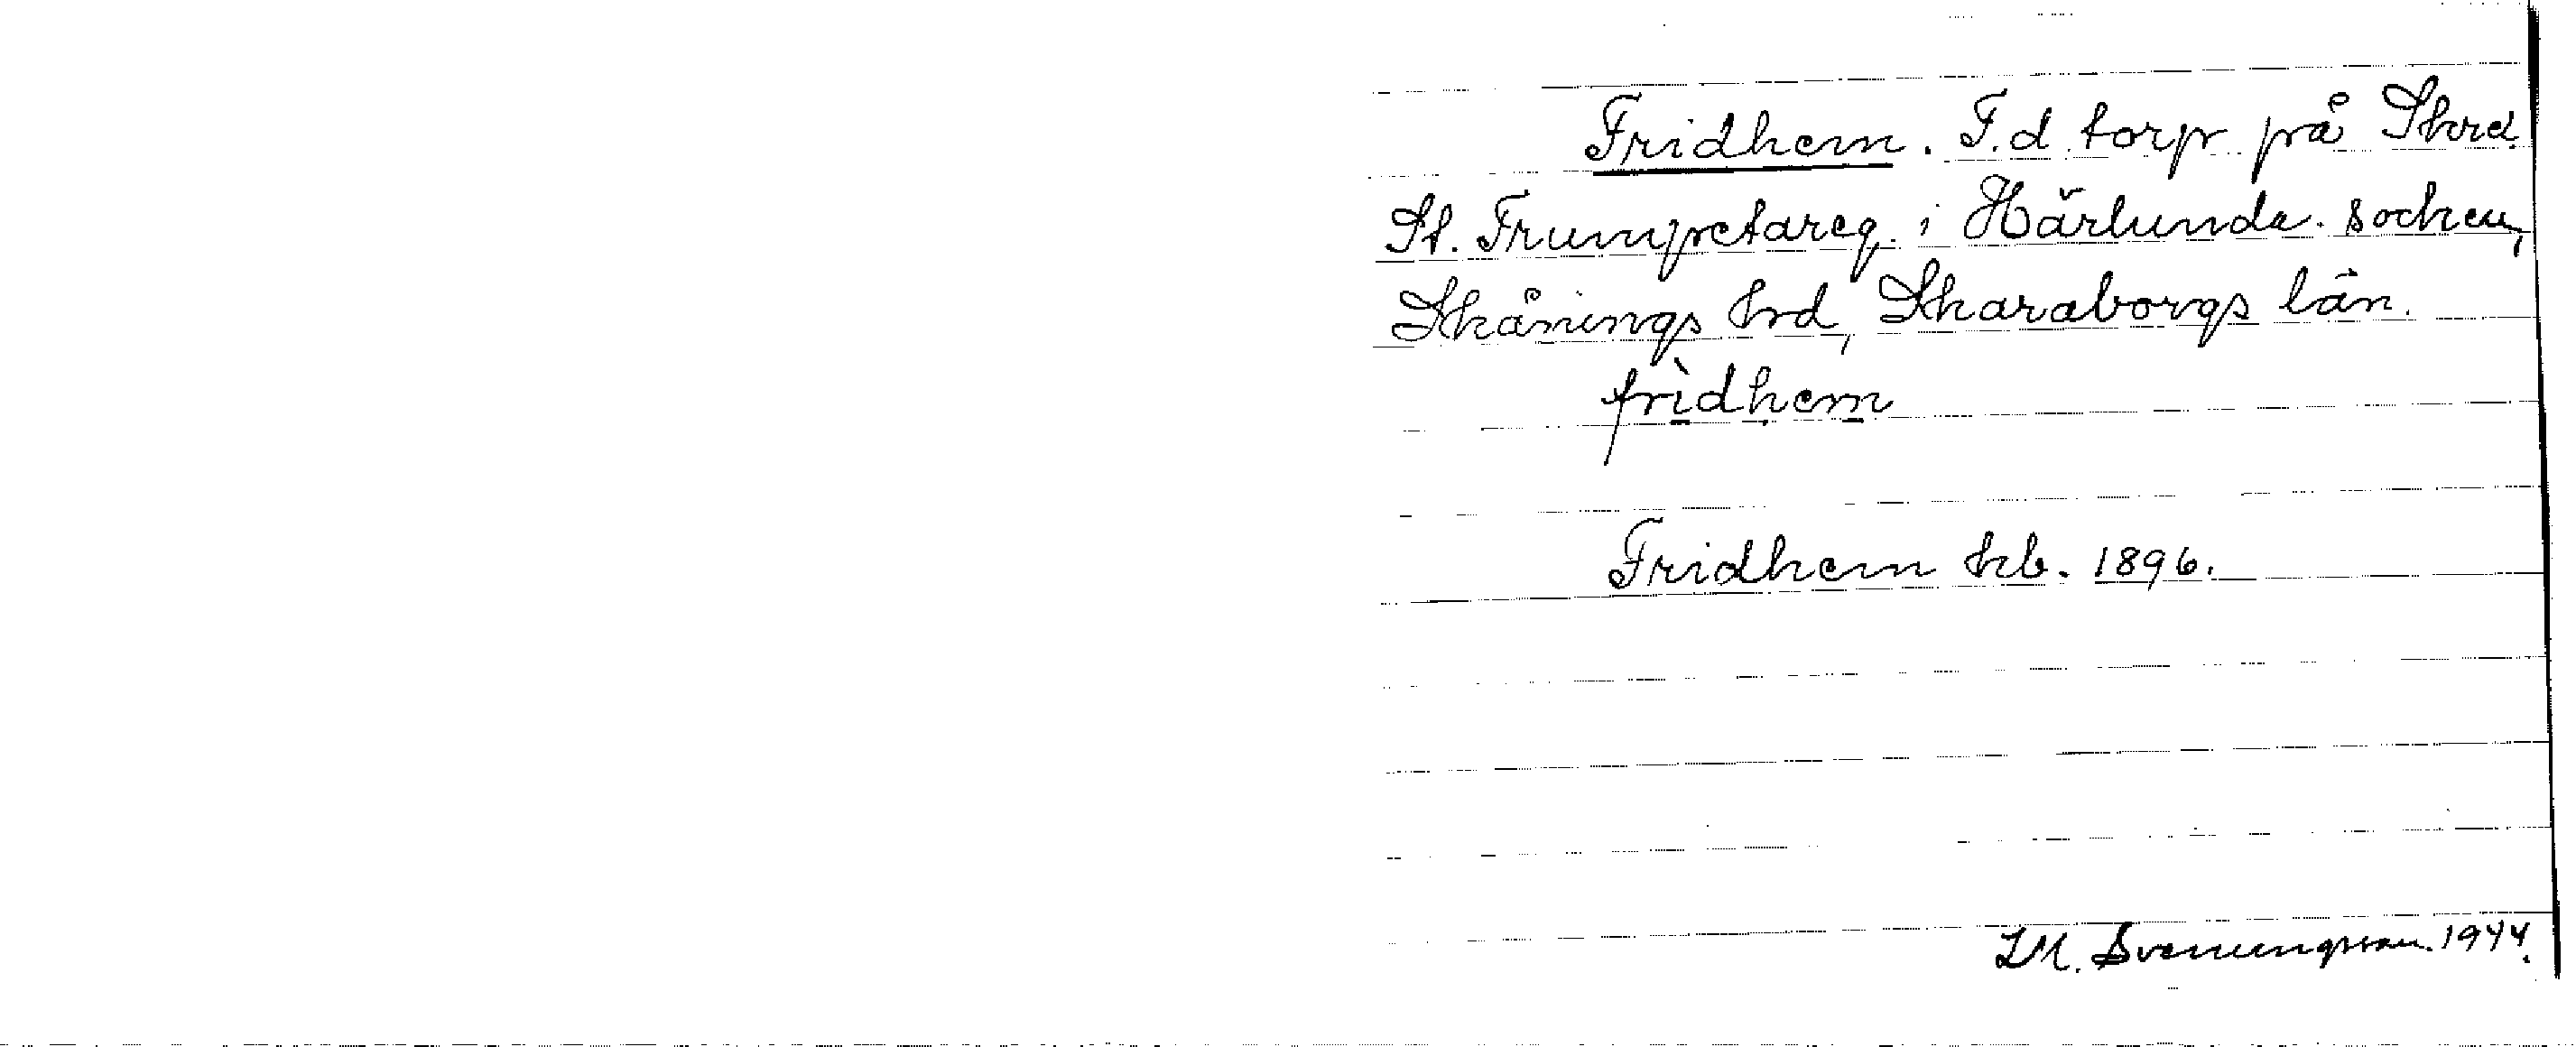 Fridhem. F.d torp på Skrd.
St. Trumpetareg. i Härlunda socken,
Skånings hrd, Skaraborgs län.
frìdhem
Fridhem kb. 1896.
M. Svenungsson. 1944.